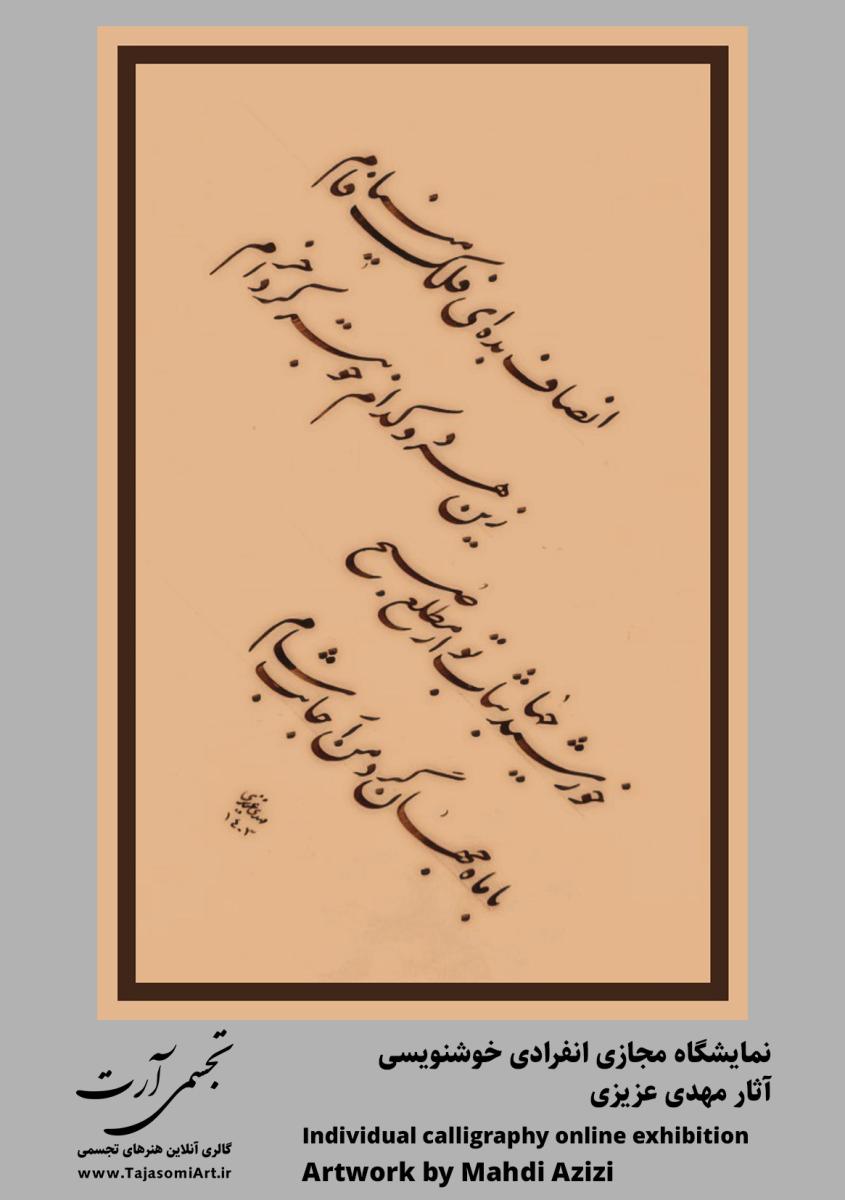 انصاف بده ای فلک مینا فام
زین هر دو کدام خوبتر کرد خرام
خورشید جهانتاب تو از مطلع صبح
یا ماه جهان گرد من از جانب شام
مهدی عزیزی
۱۴۰۳
نمایشگاه مجازی انفرادی خوشنویسی
آثار مهدی عزیزی
Individual calligraphy online exhibition
Artwork by Mahdi Azizi
تجسمی آرت
گالری آنلاین هنرهای تجسمی
www.TajasomiArt.ir